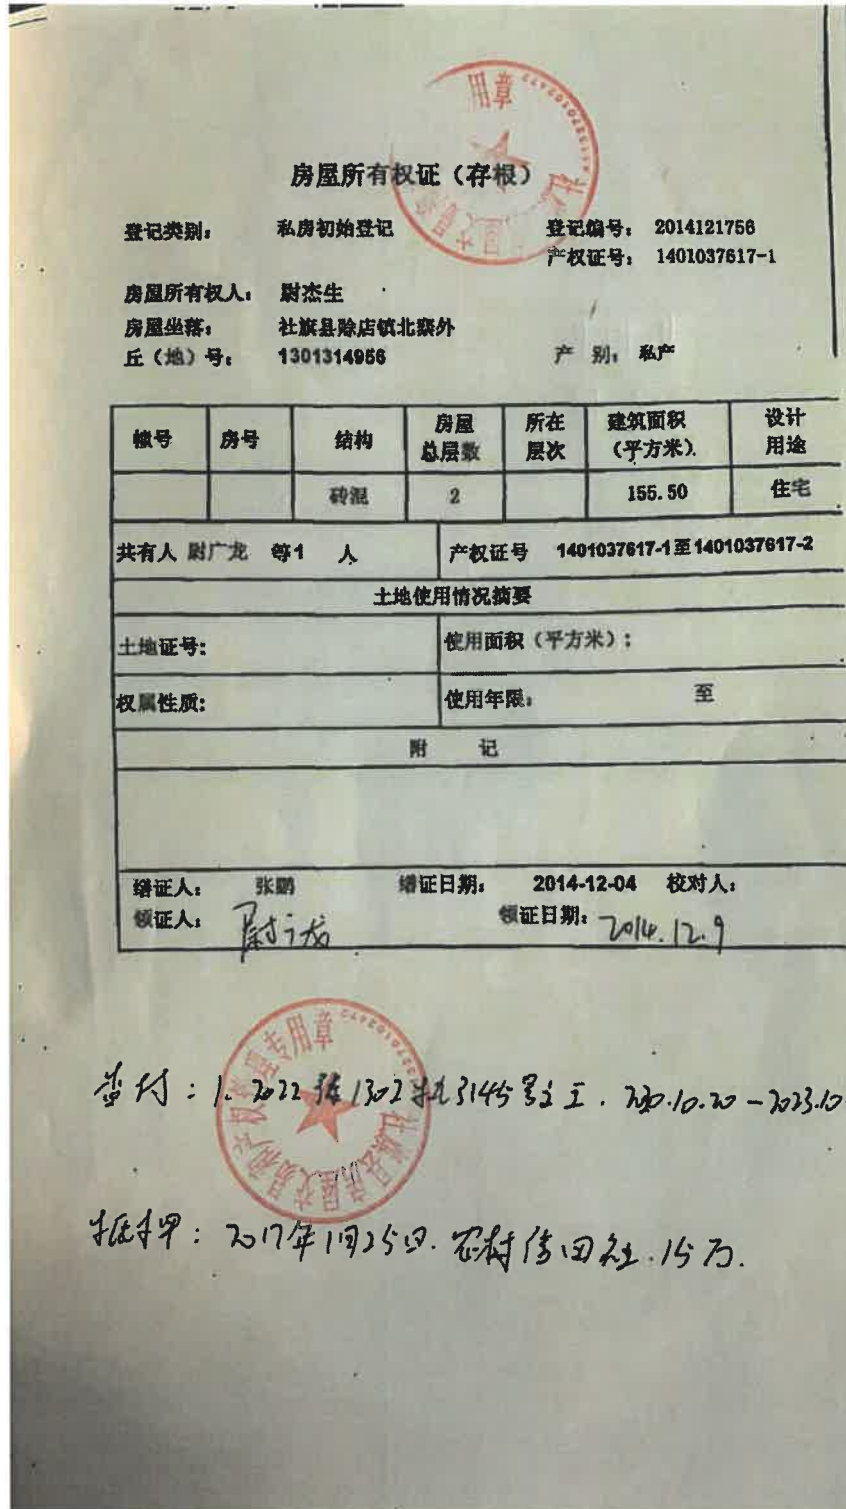 房屋所有权证（存根）
登记类别： 私房初始登记 登记编号： 2014121756
产权证号： 1401037617-1
房屋所有权人： 尉杰生
房屋坐落： 社旗县赊店镇北寨外
丘（地）号： 1301314956 产 别： 私产
幢号 房号 结构 房屋总层数 所在层次 建筑面积（平方米） 设计用途
砖混 2 155.50 住宅
共有人 尉广龙 等1 人 产权证号 1401037617-1至1401037617-2
土地使用情况摘要
土地证号： 使用面积（平方米）：
权属性质： 使用年限： 至
附 记
缮证人： 张鹏 缮证日期： 2014-12-04 校对人：
领证人： 尉广龙 领证日期： 2014.12.9
查封：1. 2022 1302 执3145号 -2023.10
抵押：2017年1月25日. 农村信用社. 15万.